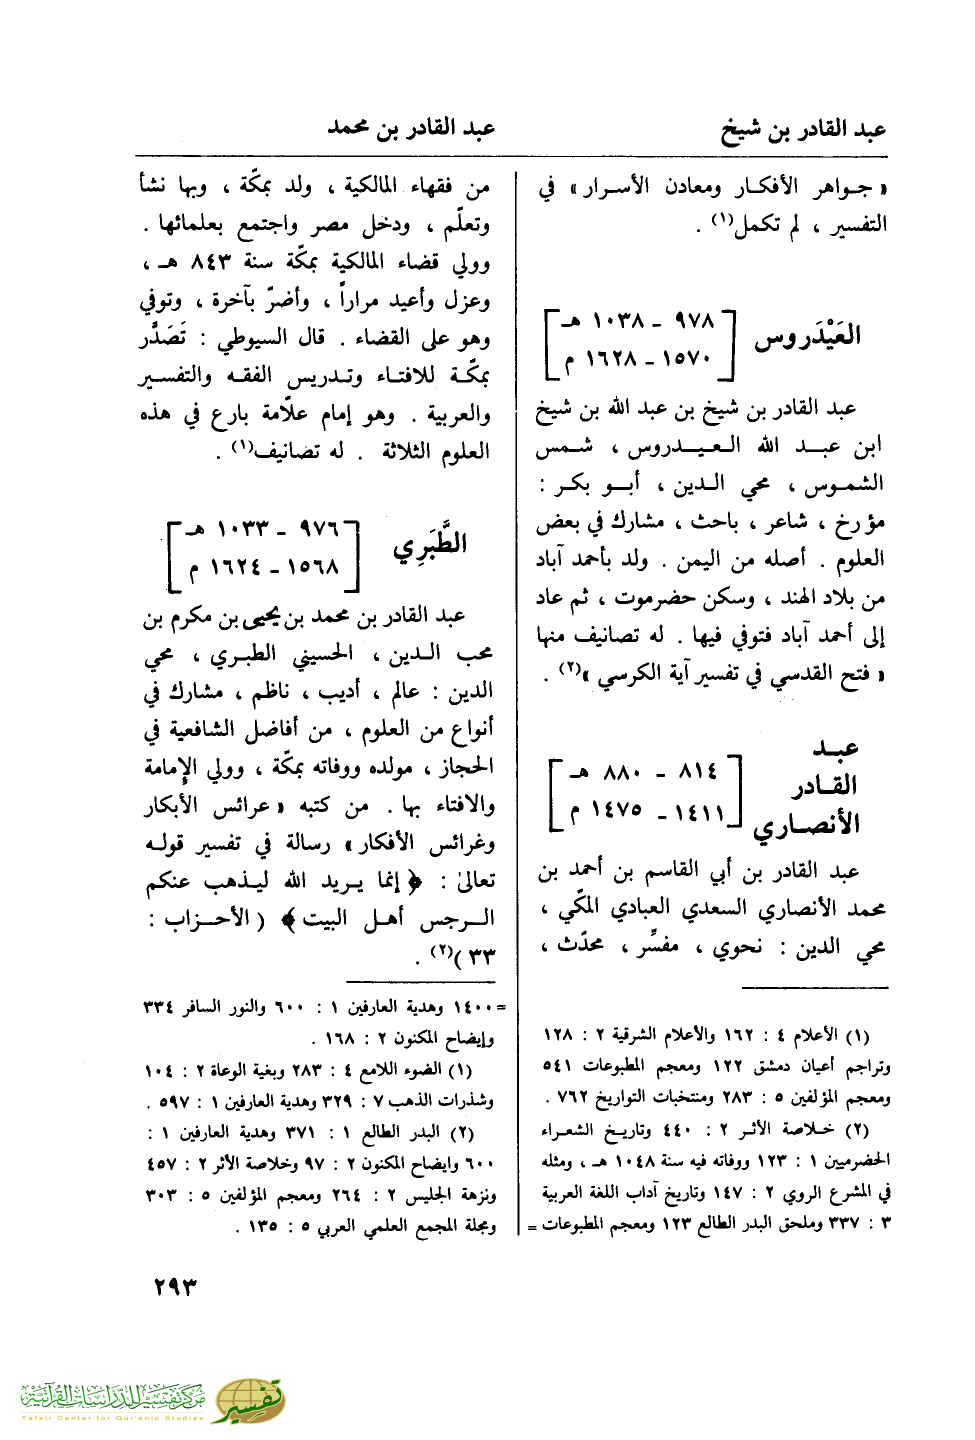 عبد القادر بن شيخ
عبد القادر بن محمد
« جواهر الأفكار ومعادن الأسرار » في
التفسير ، لم تكمل(١) .
العَيْدَروس
٩٧٨ - ١٠٣٨ هـ
١٥٧٠ - ١٦٢٨ م
عبد القادر بن شيخ بن عبد الله بن شيخ
ابن عبد الله العيدروس ، شمس
الشموس ، محي الدين ، أبو بكر :
مؤرخ ، شاعر ، باحث ، مشارك في بعض
العلوم . أصله من اليمن . ولد بأحمد آباد
من بلاد الهند ، وسكن حضرموت ، ثم عاد
إلى أحمد آباد فتوفي فيها . له تصانيف منها
« فتح القدسي في تفسير آية الكرسي »(٢) .
عبد
القادر
الأنصاري
٨١٤ - ٨٨٠ هـ
١٤١١ - ١٤٧٥ م
عبد القادر بن أبي القاسم بن أحمد بن
محمد الأنصاري السعدي العبادي المكّي ،
محي الدين : نحوي ، مفسِّر ، محدّث ،
(١) الأعلام ٤ : ١٦٢ والأعلام الشرقية ٢ : ١٢٨
وتراجم أعيان دمشق ١٢٢ ومعجم المطبوعات ٥٤١
ومعجم المؤلفين ٥ : ٢٨٣ ومنتخبات التواريخ ٧٦٢ .
(٢) خلاصة الأثر ٢ : ٤٤٠ وتاريخ الشعراء
الحضرميين ١ : ١٢٣ ووفاته فيه سنة ١٠٤٨ هـ ، ومثله
في المشرع الروي ٢ : ١٤٧ وتاريخ آداب اللغة العربية
٣ : ٣٣٧ وملحق البدر الطالع ١٢٣ ومعجم المطبوعات =
من فقهاء المالكية ، ولد بمكّة ، وبها نشأ
وتعلّم ، ودخل مصر واجتمع بعلمائها .
وولي قضاء المالكية بمكّة سنة ٨٤٣ هـ ،
وعزل وأعيد مراراً ، وأضرّ بآخرة ، وتوفي
وهو على القضاء . قال السيوطي : تَصَدَّر
بمكّة للافتاء وتدريس الفقه والتفسير
والعربية . وهو إمام علاّمة بارع في هذه
العلوم الثلاثة . له تصانيف(١) .
الطَّبَرِي
٩٧٦ - ١٠٣٣ هـ
١٥٦٨ - ١٦٢٤ م
عبد القادر بن محمد بن يحيى بن مكرم بن
محب الدين ، الحسيني الطبري ، محي
الدين : عالم ، أديب ، ناظم ، مشارك في
أنواع من العلوم ، من أفاضل الشافعية في
الحجاز ، مولده ووفاته بمكّة ، وولي الإمامة
والافتاء بها . من كتبه « عرائس الأبكار
وغرائس الأفكار » رسالة في تفسير قوله
تعالى : ﴿ إنما يريد الله ليذهب عنكم
الرجس أهل البيت ﴾ ( الأحزاب :
٣٣ )(٢) .
= ١٤٠٠ وهدية العارفين ١ : ٦٠٠ والنور السافر ٣٣٤
وإيضاح المكنون ٢ : ١٦٨ .
(١) الضوء اللامع ٤ : ٢٨٣ وبغية الوعاة ٢ : ١٠٤
وشذرات الذهب ٧ : ٣٢٩ وهدية العارفين ١ : ٥٩٧ .
(٢) البدر الطالع ١ : ٣٧١ وهدية العارفين ١ :
٦٠٠ وايضاح المكنون ٢ : ٩٧ وخلاصة الأثر ٢ : ٤٥٧
ونزهة الجليس ٢ : ٢٦٤ ومعجم المؤلفين ٥ : ٣٠٣
ومجلة المجمع العلمي العربي ٥ : ١٣٥ .
٢٩٣
مركز تفسير للدراسات القرآنية
Tafsir Center for Qur'anic Studies
تفسير